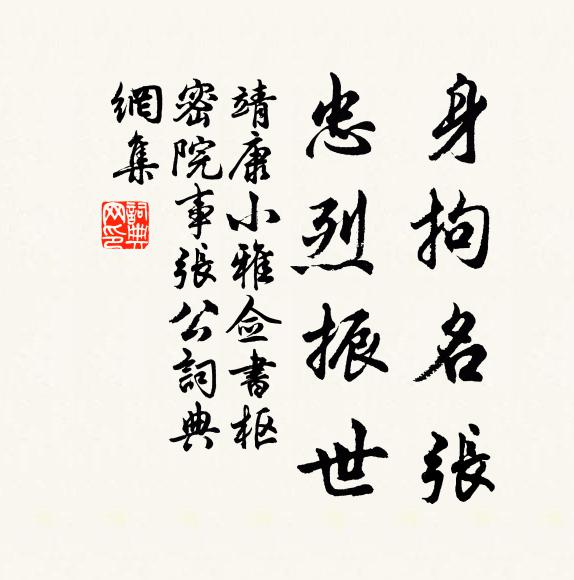 身拘名張
忠烈振世
靖康小雅僉書樞
密院事張公詞典
網集
詞典網印